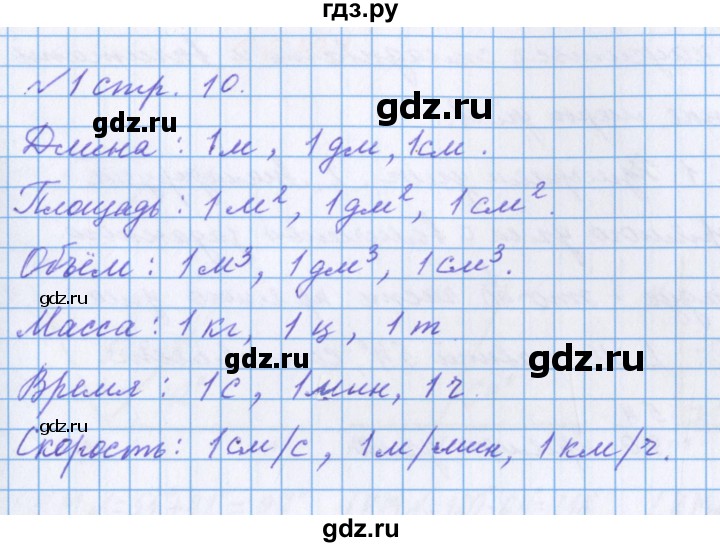 гдз.ру
№1 стр. 10.
gdz.ru
gdz.ru
Длина: 1м, 1дм, 1см.
Площадь: 1м², 1дм², 1см².
Объём: 1м³, 1дм³, 1см³.
gdz.ru
Масса: 1кг, 1ц, 1т.
gdz.ru
gdz.ru
Время: 1с, 1мин, 1ч.
gdz.ru
Скорость: 1см/с, 1м/мин, 1км/ч.
gdz.ru
gdz.ru